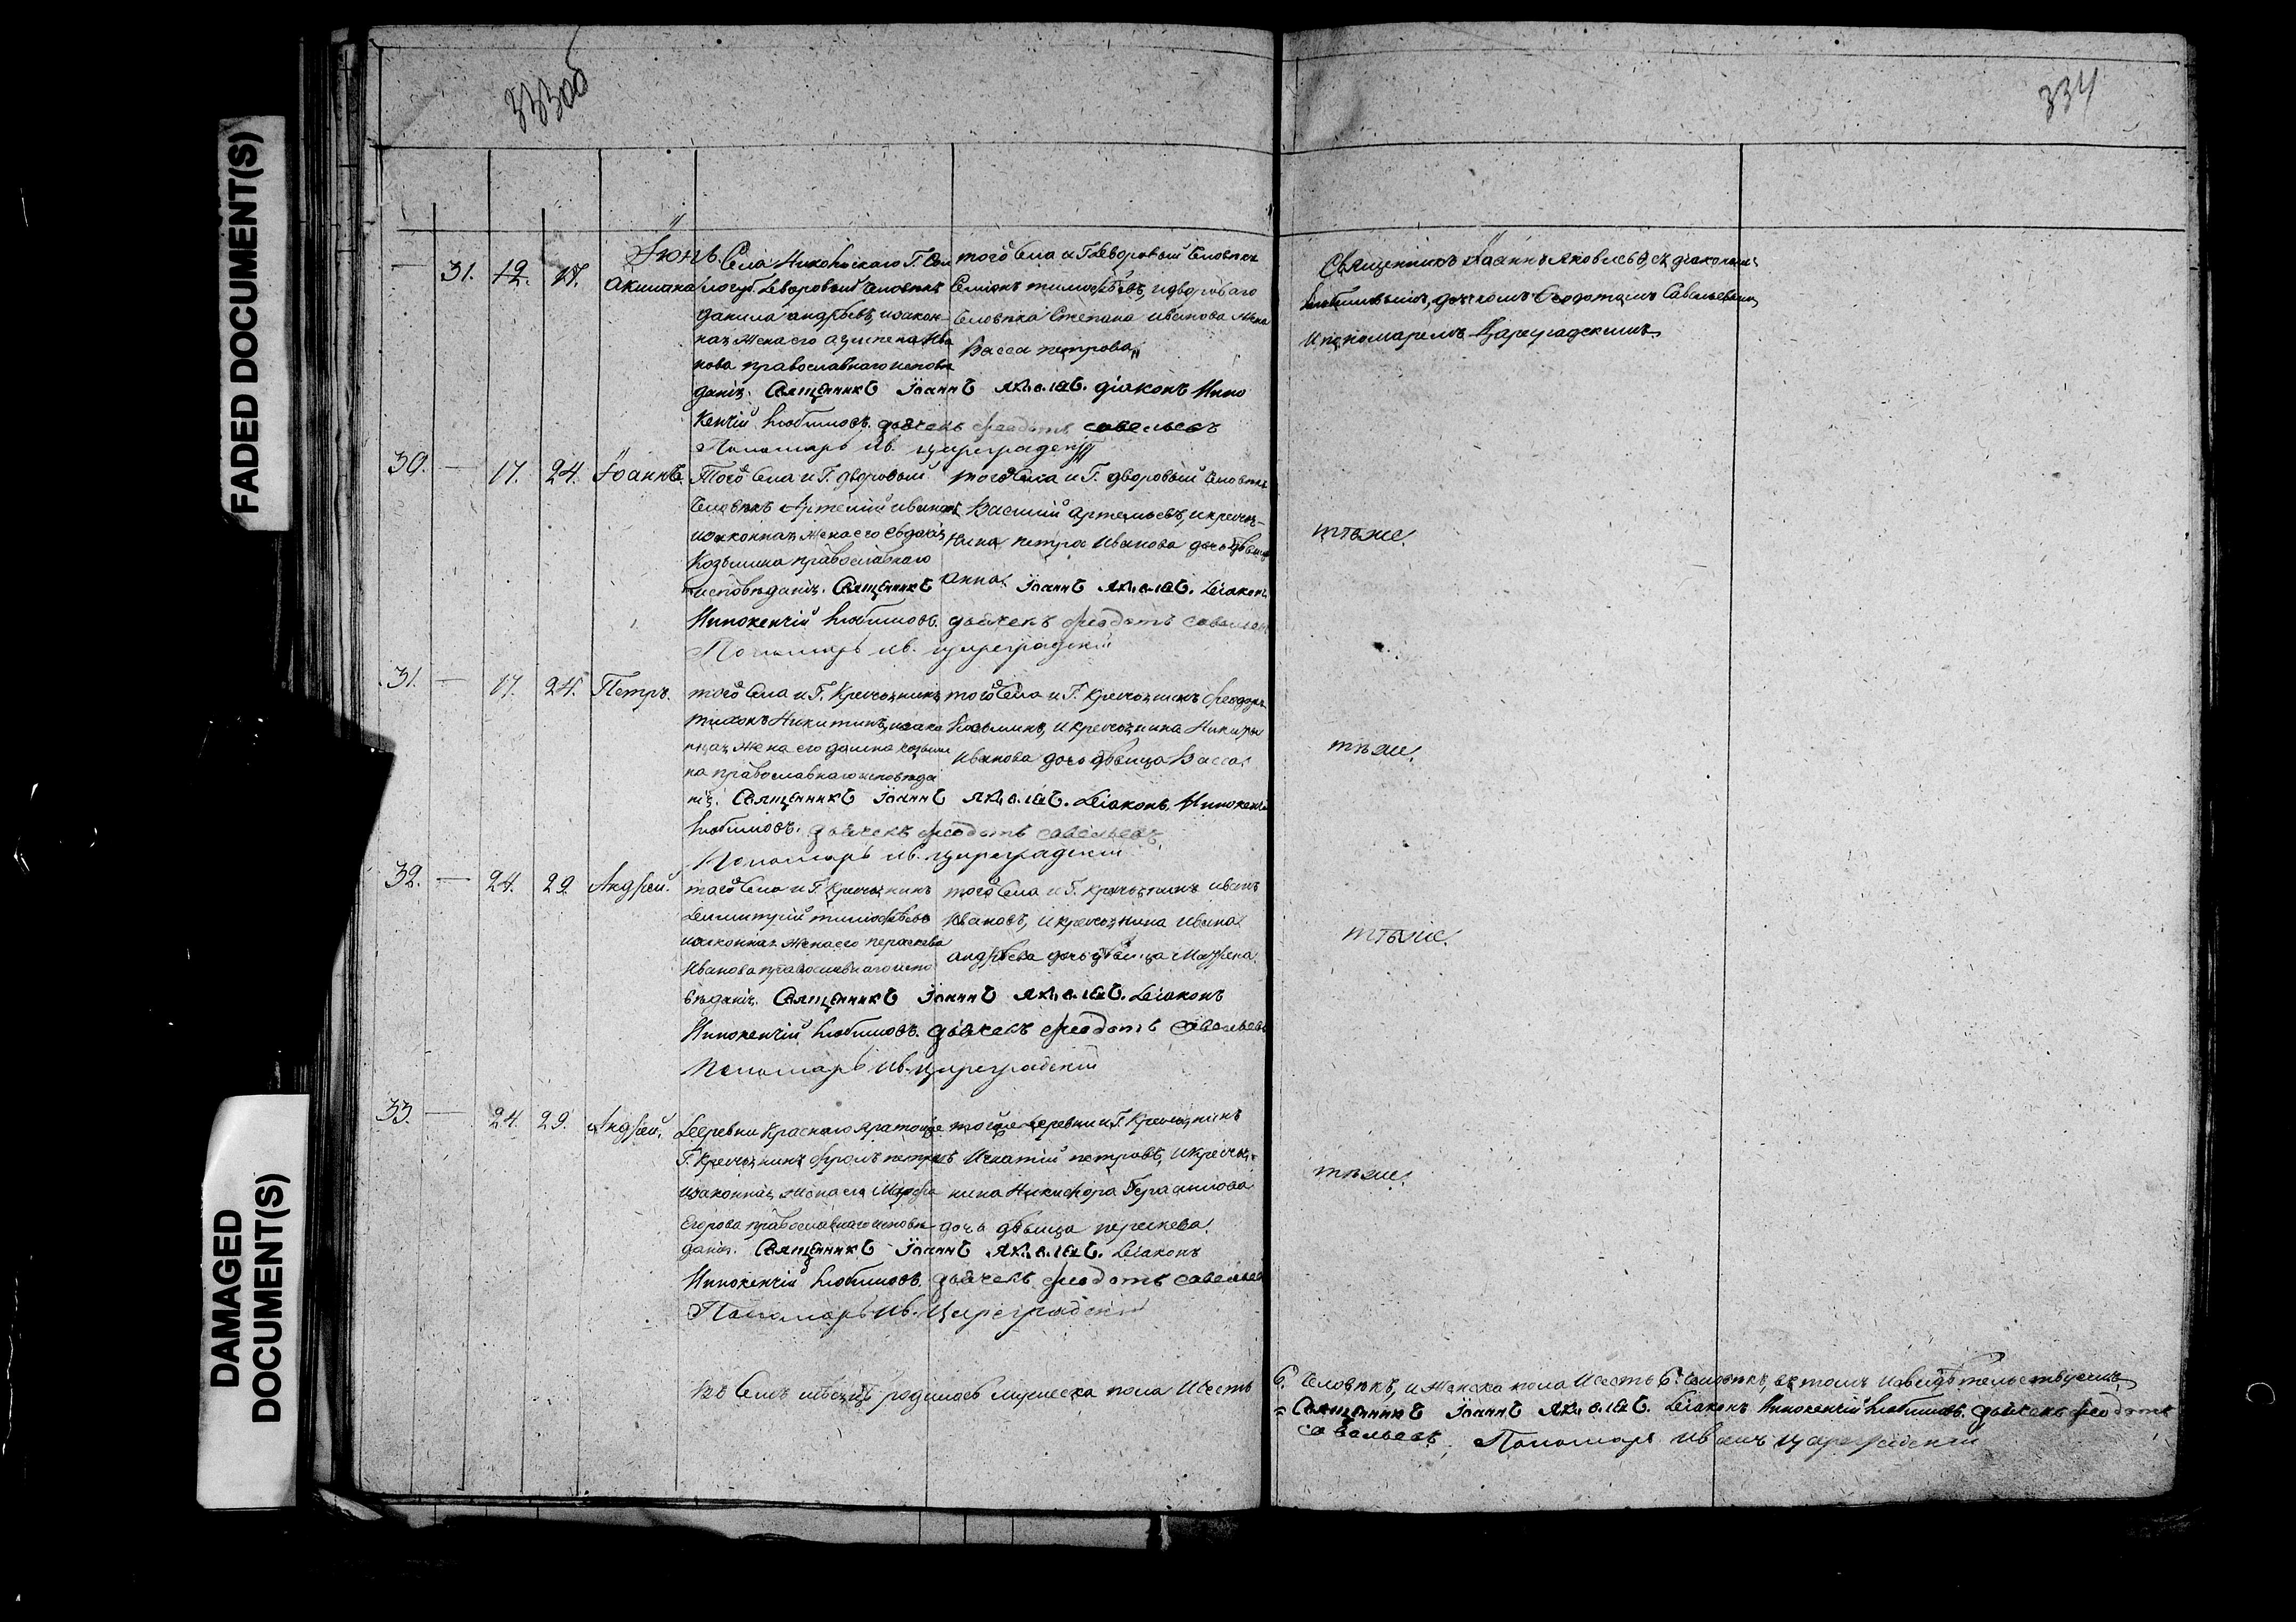 FADED DOCUMENT(S)
DAMAGED DOCUMENT(S)
333об
334
Iюнь.
31. 12. 17. Акилина
Села Никольскаго Г.
Дворовый человекъ
данила андрѣевъ, изакон
ная жена его агрипена Ива
нова православнаго исповѣ
данія. Священникъ Iоаннъ Яковлевъ. дiаконъ Инно
кенчiй Любимовъ. дьячекъ феодотъ савельевъ
Пономарь Ив. цареградскiй
того Села и Г. Дворовый человѣкъ
Семионъ тимофѣевъ, идвороваго
человѣка Степана иванова жена
Васса петрова
Священникъ Iоаннъ Яковлевъ, съ дiакономъ
Любимовымъ, дьячкомъ Феодотомъ Савельевымъ,
и пономаремъ Цареградскимъ
30. — 17. 24. Iоаннъ.
Того Села и Г. дворовый
человѣкъ Артемий ивановъ
изаконная жена его Евдокiя
Козьмина православнаго
исповѣданiя. Священникъ Iоаннъ Яковлевъ. Дiаконъ
Иннокенчiй Любимовъ. дьячекъ феодотъ савельевъ
Пономарь ив. цареградскiй
того Села и Г. дворовый человѣкъ
Василий Артемьевъ, икресть-
нина петра Иванова дочь дѣвица
Анна.
тѣже.
31. — 17. 24. Петръ.
того Села и Г. Крестьянинъ
тихонъ Никитинъ, изако
нная жена его домна козьми
на православнаго исповѣда
нiя. Священникъ Iоаннъ Яковлевъ. Дiаконъ Иннокенчiй
Любимовъ. дьячекъ феодотъ савельевъ
Пономарь ив. цареградскiй
того Села и Г. Крестьянинъ феодоръ
Козьминъ, и крестьянина Никиты
Иванова дочь дѣвица Васса.
тѣже.
32. — 24. 29. Андрей.
того Села и Г. Крестьянинъ
Димитрiй тимофѣевъ
изаконная жена его параскева
Иванова православнаго испо
вѣданiя. Священникъ Iоаннъ Яковлевъ. Дiаконъ
Иннокенчiй Любимовъ. дьячекъ феодотъ Савельевъ
Пономарь Ив. цареградскiй
того Села и Г. крестьянинъ иванъ
Ивановъ, и крестьянина ивана
андрѣева дочь дѣвица Матрена.
тѣже.
33. — 24. 29. Андрей.
Деревни Краснаго яра тогоже
Г. Крестьянинъ фролъ петровъ
изаконная жена его Марфа
Егорова православнаго исповѣ
данiя. Священникъ Iоаннъ Яковлевъ. Дiаконъ
Иннокенчiй Любимовъ. дьячекъ феодотъ савельевъ
Пономарь Ив. Цареградскiй
тойже деревни и Г. Крестьянинъ
Игнатiй петровъ, икресть-
нина Никифора Герасимова
дочь дѣвица параскева.
тѣже.
Въ Семъ мѣсяцѣ родилось мужеска пола Шесть
6. человѣкъ, и Женска пола Шесть 6. человѣкъ, въ томъ исвидѣтельствуемъ
Священникъ Iоаннъ Яковлевъ. Дiаконъ Иннокенчiй Любимовъ. дьячекъ феодотъ
савельевъ, Пономарь Иванъ цареградскiй